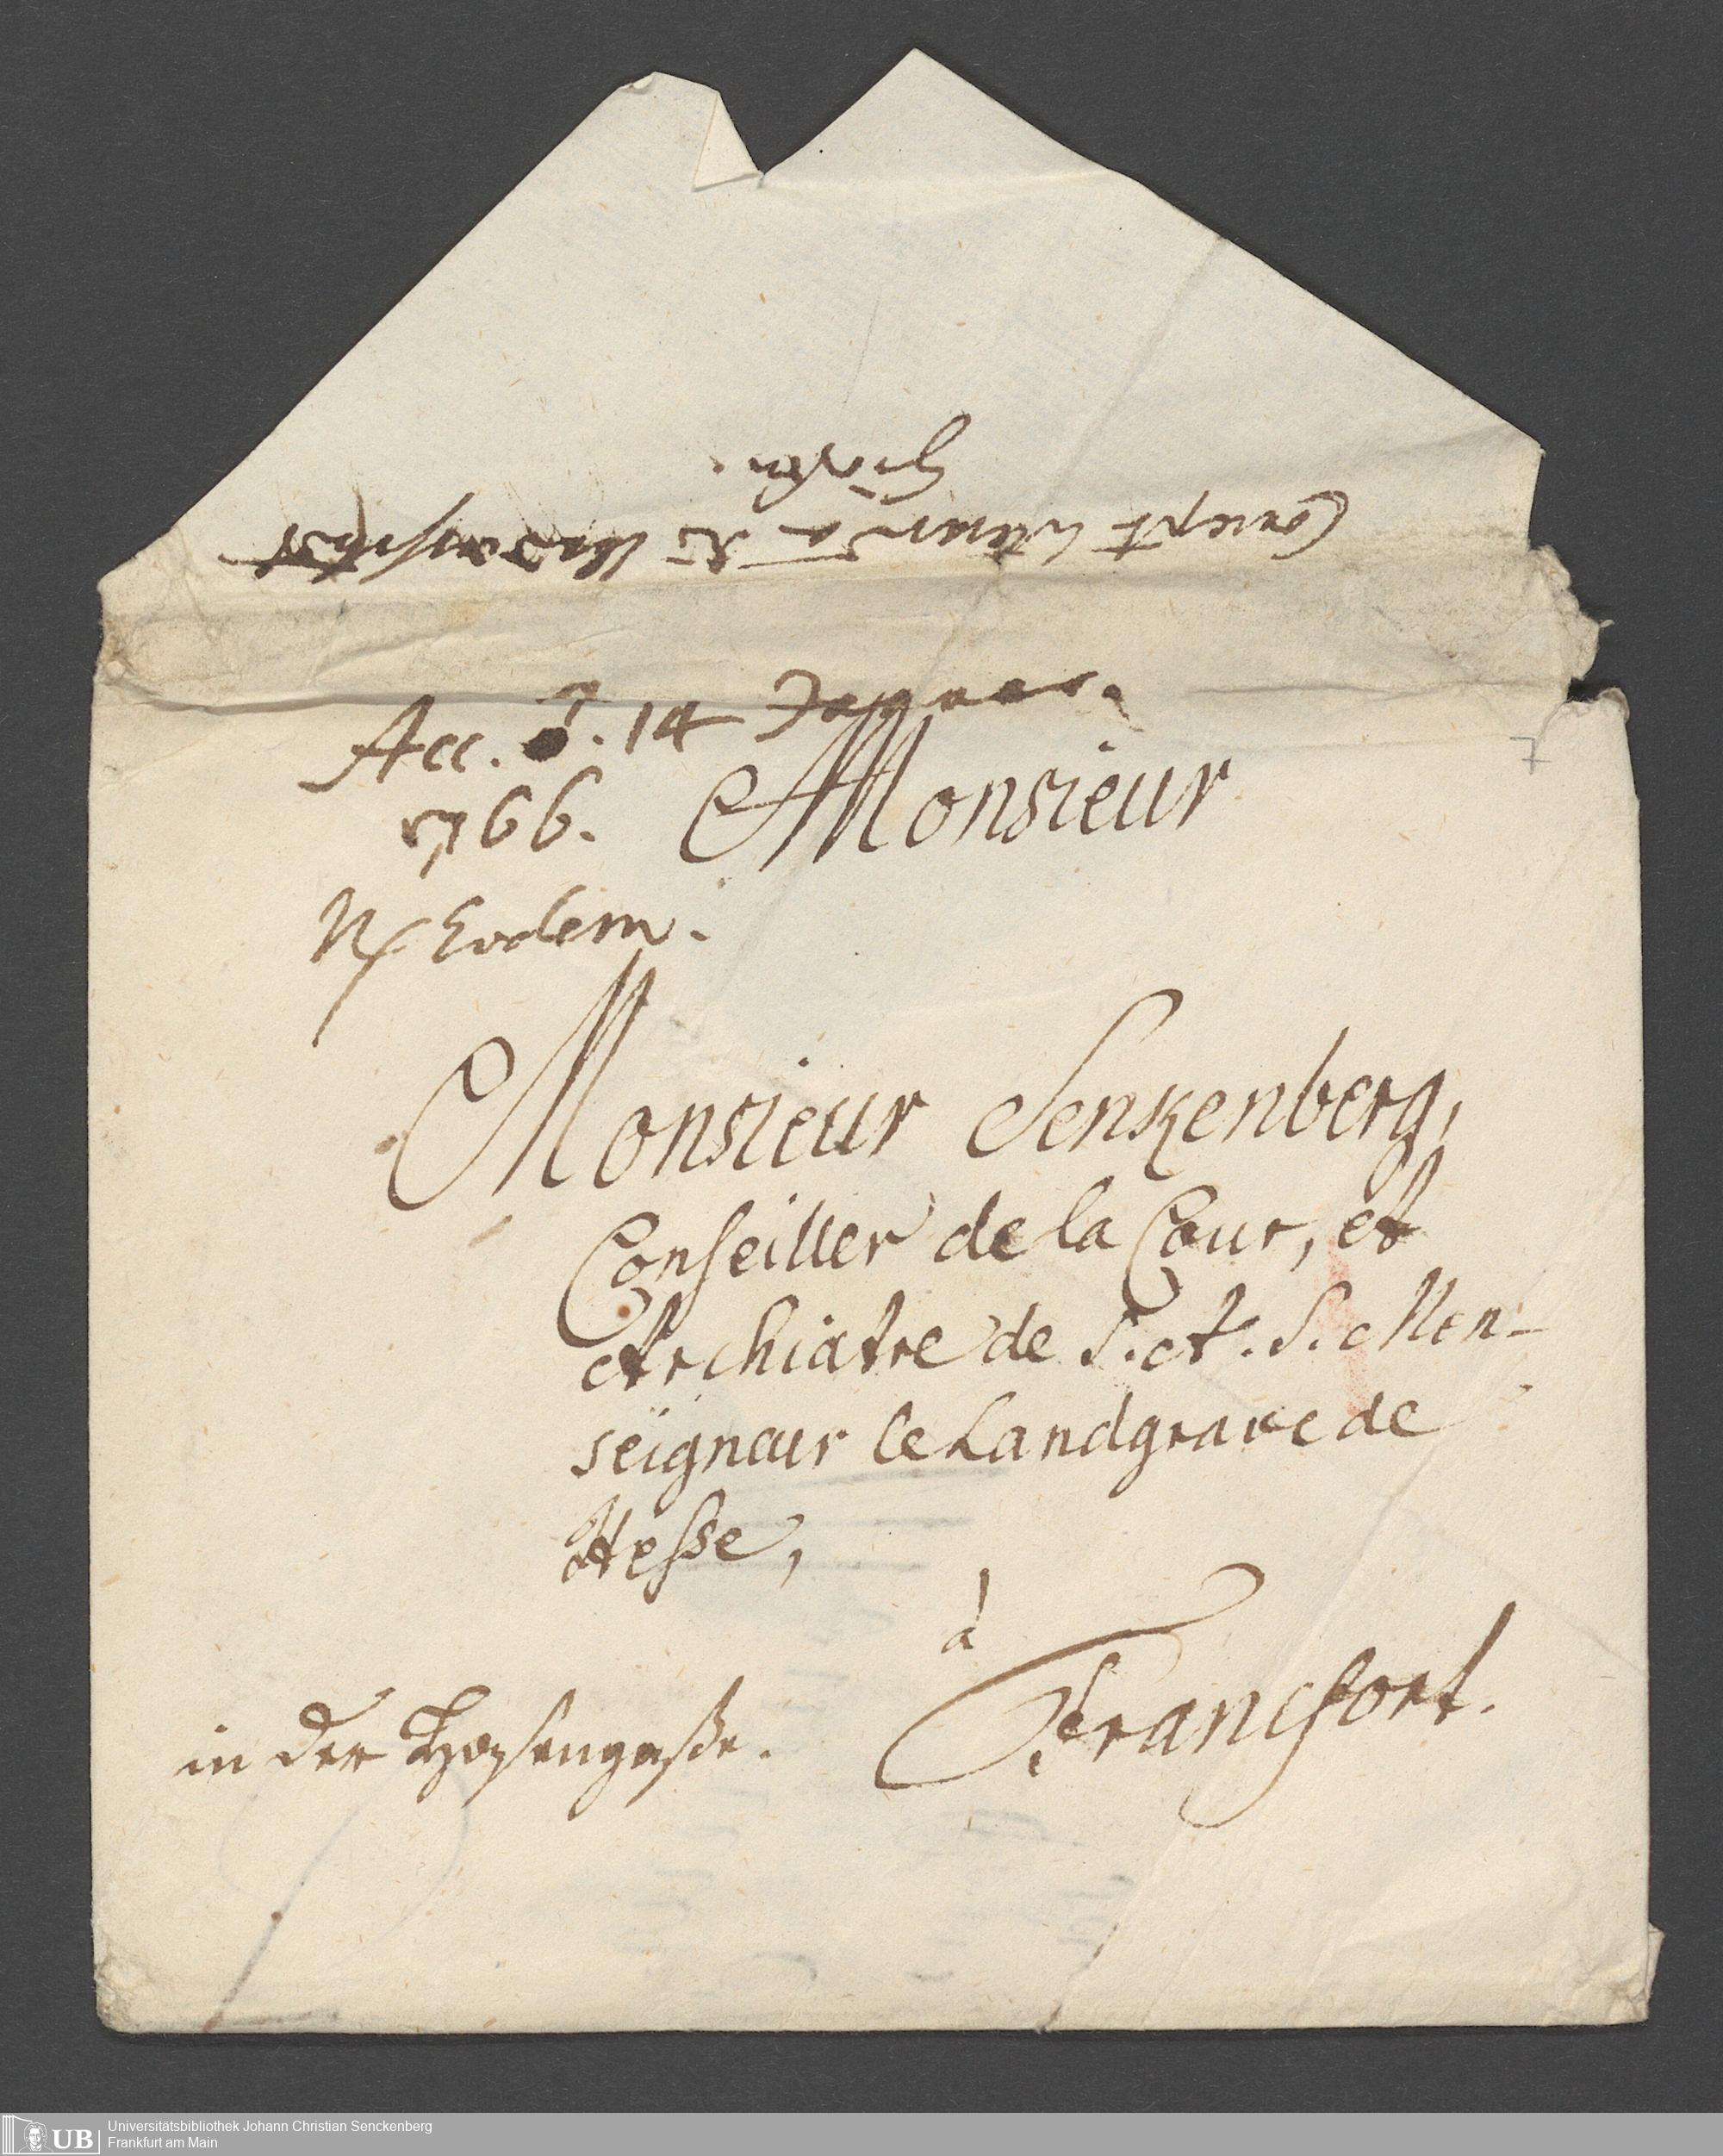 Concept
Acc. ♂. 14 Januar.
1766. Monsieur
Eodem.
Monsieur Senkenberg,
Conseiller de la Cour, et
Archiatre de S. A. S. Mon-
seigneur le Landgrave de
Hesse,
à
Francfort.
in der Hasengaße.
7
UB Universitätsbibliothek Johann Christian Senckenberg
Frankfurt am Main